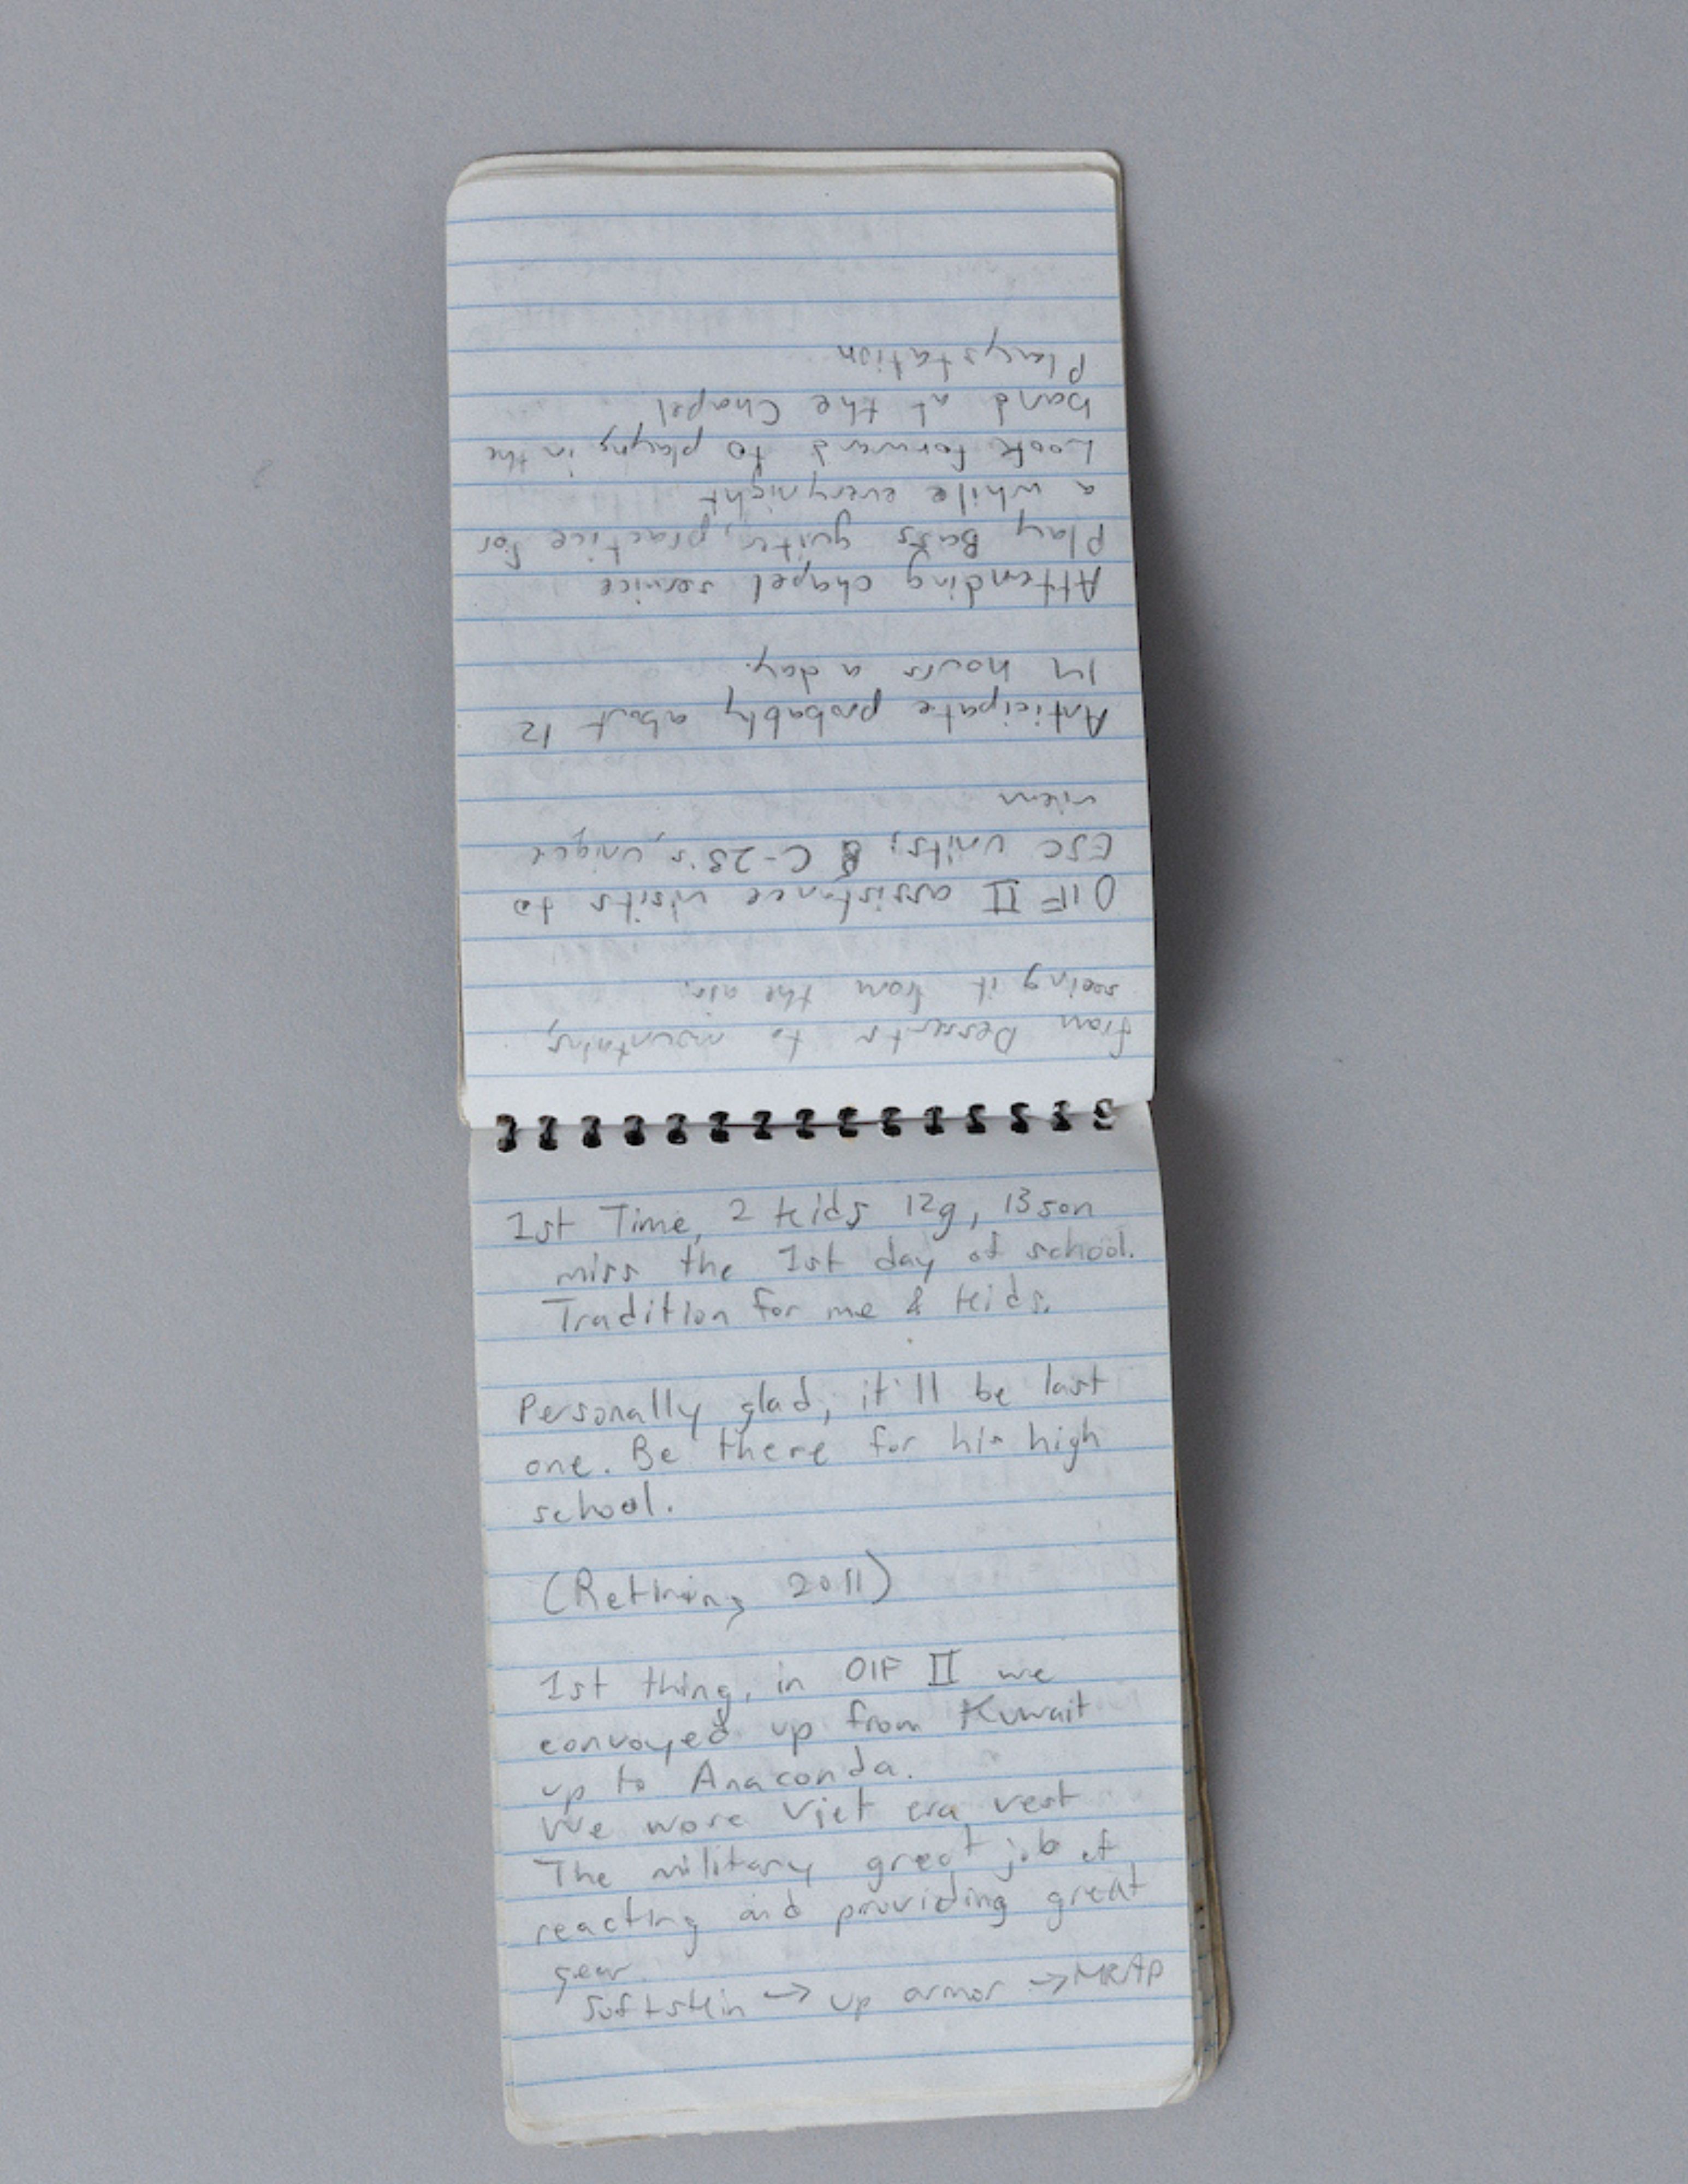 1st Time, 2 kids 12g, 13 son
miss the 1st day of school.
Tradition for me & kids.
Personally glad, it'll be last
one. Be there for his high
school.
(Retiring 2011)
1st thing, in OIF II we
convoyed up from Kuwait
up to Anaconda.
We wore Viet era vest
The military great job of
reacting and providing great
gear.
Softskin → up armor → MRAP
from Desserts to mountains,
seeing it from the air.
OIF II assistance visits to
ESC units; C-23's, unique
view
Anticipate probably about 12
14 hours a day.
Attending chapel service
Play Bass guitr, practice for
a while everynight
Look forward to playing in the
band at the Chapel
Playstation